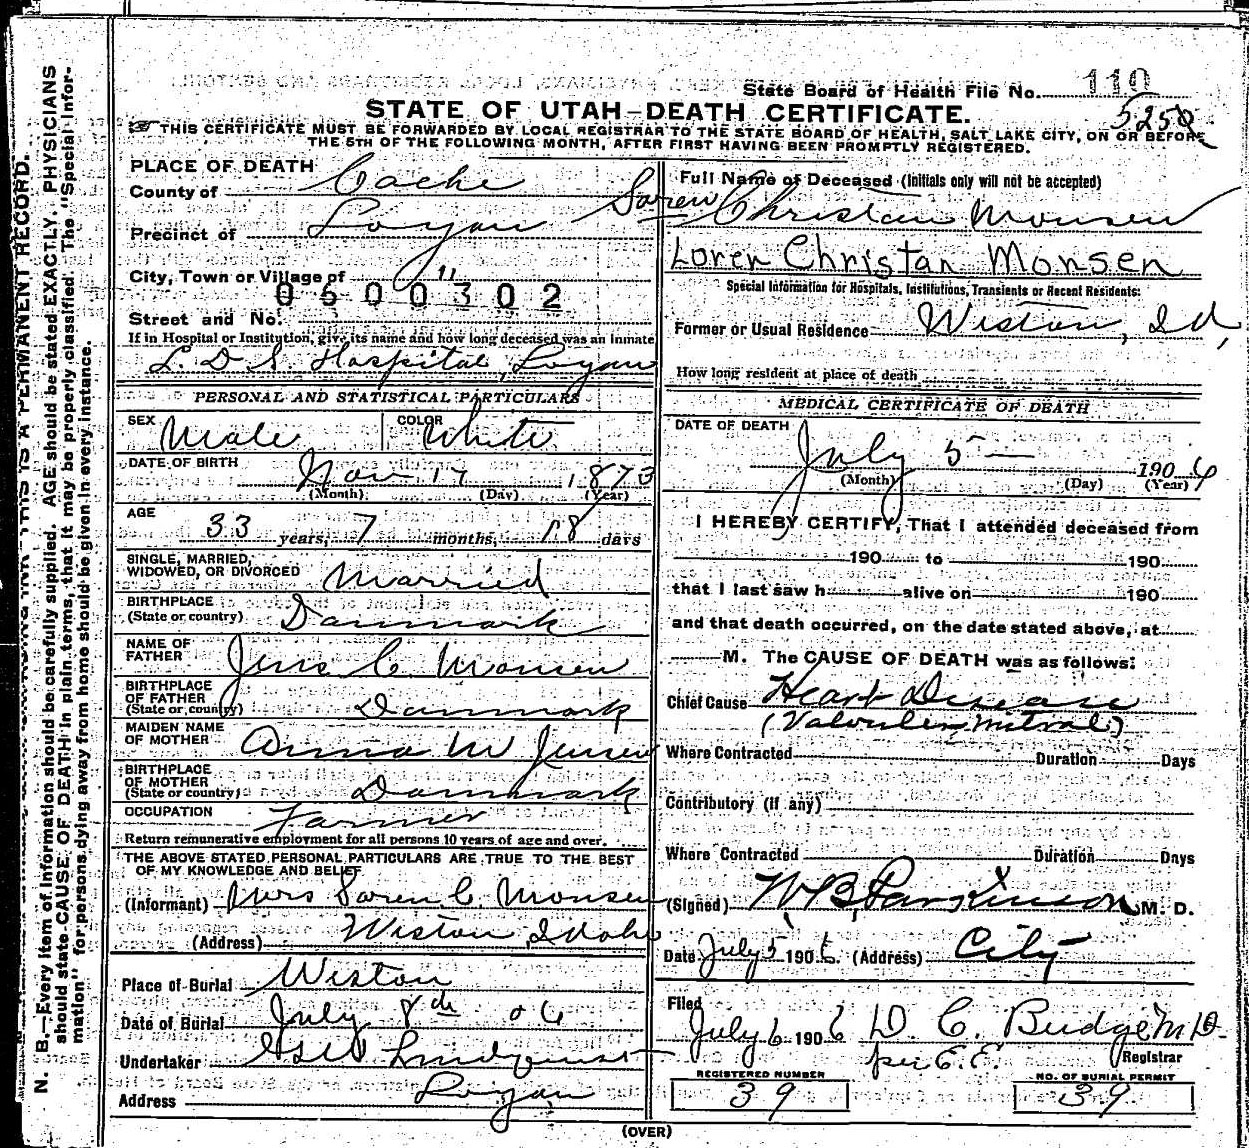 State Board of Health File No. 110
5250
STATE OF UTAH—DEATH CERTIFICATE.
THIS CERTIFICATE MUST BE FORWARDED BY LOCAL REGISTRAR TO THE STATE BOARD OF HEALTH, SALT LAKE CITY, ON OR BEFORE
THE 5TH OF THE FOLLOWING MONTH, AFTER FIRST HAVING BEEN PROMPTLY REGISTERED.
N. B.—Every item of information should be carefully supplied. AGE should be stated EXACTLY. PHYSICIANS
should state CAUSE OF DEATH in plain terms, that it may be properly classified. The "Special Infor-
mation" for persons dying away from home should be given in every instance.
PLACE OF DEATH
County of Cache
Precinct of Logan
City, Town or Village of "
0500302
Street and No.
If in Hospital or Institution, give its name and how long deceased was an inmate
L. D. S. Hospital, Logan
PERSONAL AND STATISTICAL PARTICULARS
SEX Male COLOR White
DATE OF BIRTH Nov 17 1873
(Month) (Day) (Year)
AGE
33 years, 7 months, 18 days
SINGLE, MARRIED,
WIDOWED, OR DIVORCED Married
BIRTHPLACE
(State or country) Danmark
NAME OF
FATHER Jens C. Monsen
BIRTHPLACE
OF FATHER
(State or country) Danmark
MAIDEN NAME
OF MOTHER Anna M Jensen
BIRTHPLACE
OF MOTHER
(State or country) Danmark
OCCUPATION Farmer
Return remunerative employment for all persons 10 years of age and over.
THE ABOVE STATED PERSONAL PARTICULARS ARE TRUE TO THE BEST
OF MY KNOWLEDGE AND BELIEF
(Informant) Mrs Soren C. Monsen
(Address) Wiston, Idaho
Place of Burial Wiston
Date of Burial July 8th 06
Undertaker Lindquist
Address Logan
Full Name of Deceased (Initials only will not be accepted)
Soren Christian Monsen
Loren Christan Monsen
Special Information for Hospitals, Institutions, Transients or Recent Residents:
Former or Usual Residence Wiston, Id,
How long resident at place of death
MEDICAL CERTIFICATE OF DEATH
DATE OF DEATH
July 5— 1906
(Month) (Day) (Year)
I HEREBY CERTIFY, That I attended deceased from
190 to 190
that I last saw h alive on 190
and that death occurred, on the date stated above, at
M. The CAUSE OF DEATH was as follows:
Chief Cause Heart Disease
(Valvular, Mitral)
Where Contracted Duration Days
Contributory (If any)
Where Contracted Duration Days
(Signed) W B Parkinson M. D.
Date July 5 1906 (Address) City
Filed
July 6 1906 D. C. Budge M D.
per E. E. Registrar
REGISTERED NUMBER NO. OF BURIAL PERMIT
39 39
(OVER)